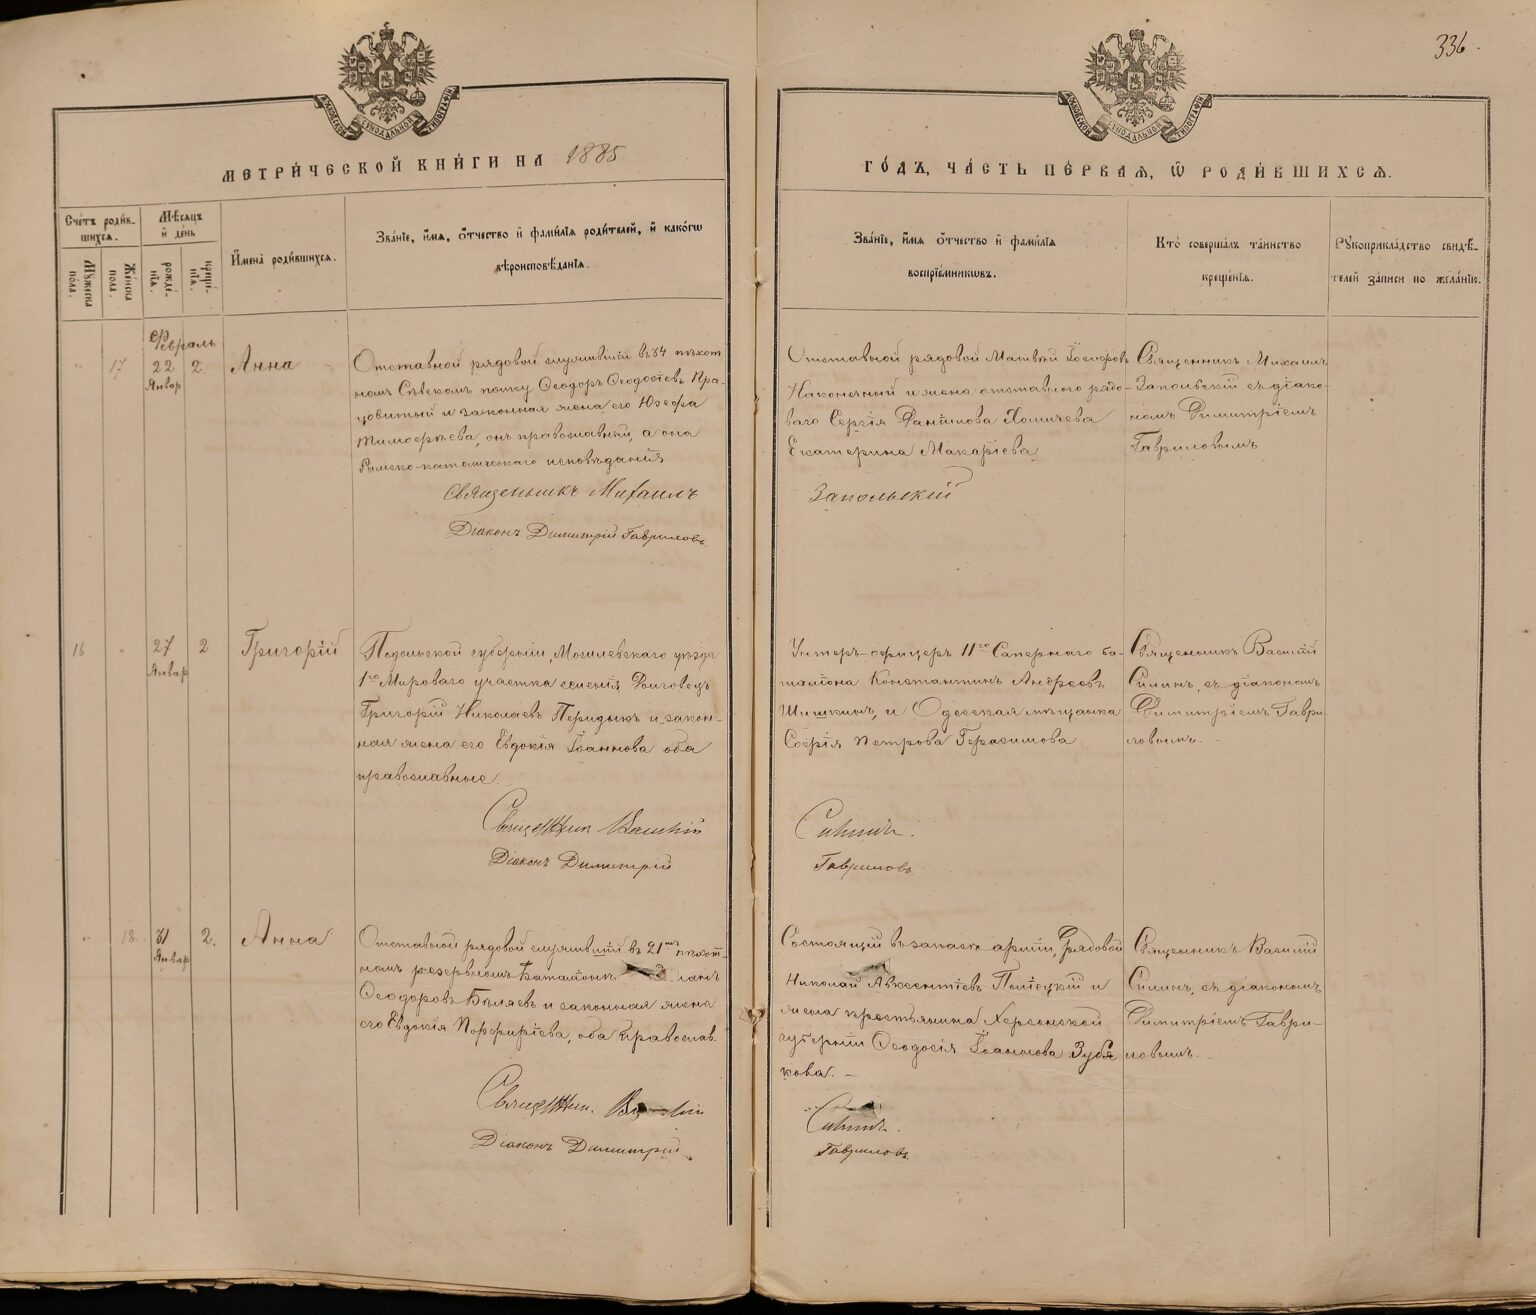 336.
МЕТРИ́ЧЕСКОЙ КНИ́ГИ НА 1885
ГО́ДЪ, ЧА́СТЬ ПЕ́РВАѦ, Ѡ РОДИ́ВШИХСѦ.
Сче́тъ роди́в-
шихсѧ.
Мꙋ́жеска по́ла.
Же́нска по́ла.
Мѣ́сѧцъ
и҆ де́нь
рожде́-
нїѧ.
креще́-
нїѧ.
И҆мена̀ роди́вшихсѧ.
Зва́нїе, и҆́мѧ, ѻ҆́тчество и҆ фами́лїѧ роди́телей, и҆ како́гѡ
вѣроисповѣ́данїѧ.
Зва́нїе, и҆́мѧ ѻ҆́тчество и҆ фами́лїѧ
воспрїе́мникѡвъ.
Кто̀ соверша́лъ та́инство
креще́нїѧ.
Рꙋкоприкла́дство свидѣ́-
телей за́писи по жела́нїю.
Февраль
" 17 22 2 Анна
Январ
Отставной рядовой служившій въ 54 пѣхот
номъ полку Ѳеодоръ Ѳеодосіевъ Пра-
цовитый и законная жена его Юзефа
Тимоѳеева, онъ православный, а она
Римско-католическаго исповѣданія
Священникъ Михаилъ
Діаконъ Димитрій Гавриловъ.
Отставной рядовой Матвѣй Іосифовъ
Наконечный и жена отставного рядо-
ваго Сергія Даніилова Хомичева
Екатерина Макаріева
Запольскій
Священникъ Михаилъ
Запольскій съ діако-
номъ Димитріемъ
Гавриловымъ
16 " 27 2 Григорій
Январ
Подольской губерніи, Могилевскаго уѣзда
1го Мироваго участка селенія
Григорій Николаевъ и закон-
ная жена его Евдокія Іоаннова оба
православные.
Священник Василій
Діаконъ Димитрій
Унтеръ-офицеръ 11го Сапернаго ба-
таліона Константинъ Андреевъ
Шишкинъ, и Одесская мѣщанка
Софія Петрова Герасимова
Силинъ.
Гавриловъ
Священникъ Василій
Силинъ, съ діакономъ
Димитріемъ Гаври-
ловымъ.
" 18. 31 2. Анна
Январ
Отставной рядовой служившій въ 21мъ пѣхот-
номъ резервномъ баталіонѣ
Ѳеодоровъ Бѣляевъ и законная жена
его Евдокія Порфиріева, оба православ.
Священник. Василій
Діаконъ Димитрій
Состоящій въ запасѣ арміи, рядовой
Николай Авксентіевъ Полѣцкій и
жена крестьянина Херсонской
губерніи Ѳеодосія Іоаннова Зубя
кова.
Силинъ.
Гавриловъ
Священникъ Василій
Силинъ, съ діакономъ
Димитріемъ Гаври-
ловымъ.